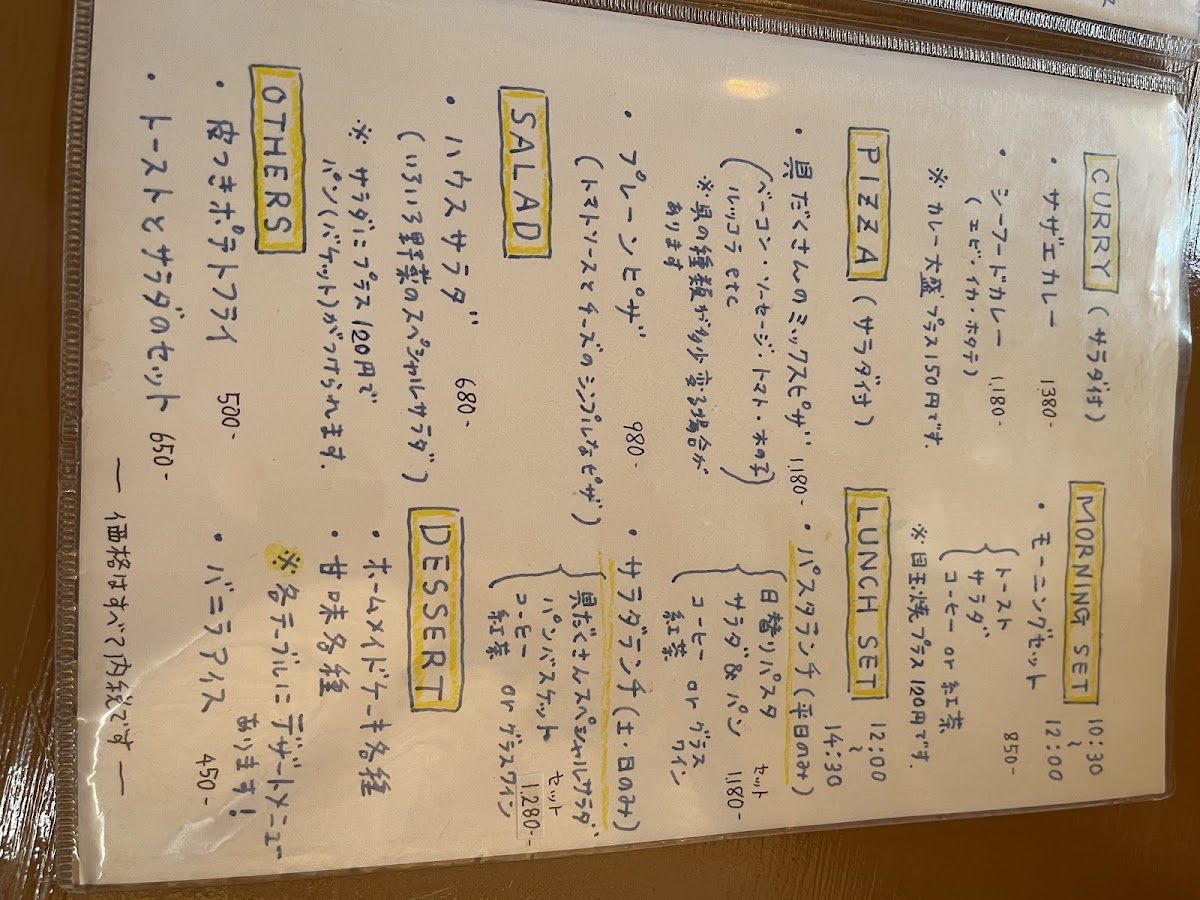 CURRY (サラダ付)
・サザエカレー 1380-
・シーフードカレー 1,180-
(エビ・イカ・ホタテ)
※ カレー大盛プラス150円です.
PIZZA (サラダ付)
・具だくさんのミックスピザ 1,180-
(ベーコン・ソーセージ・トマト・木の子
ルッコラ etc)
※具の種類が多少変る場合が
あります
・プレーンピザ 980-
(トマトソースとチーズのシンプルなピザ)
SALAD
・ハウスサラダ 680-
(いろいろ野菜のスペシャルサラダ)
※ サラダにプラス120円で
パン(バケット)がつけられます.
OTHERS
・皮つきポテトフライ 500-
・トーストとサラダのセット 650-
MORNING SET 10:30
〜
12:00
・モーニングセット
トースト 850-
サラダ
コーヒー or 紅茶
※目玉焼プラス120円です.
LUNCH SET 12:00
〜
14:30
・パスタランチ(平日のみ)
日替りパスタ セット
サラダ&パン 1,180-
コーヒー or グラス
紅茶 ワイン
・サラダランチ(土・日のみ)
具だくさんスペシャルサラダ
パンバスケット セット
コーヒー or グラスワイン 1,280-
紅茶
DESSERT
・ホームメイドケーキ各種
・甘味各種
※各テーブルにデザートメニュー
あります!
・バニラアイス 450-
― 価格はすべて内税です ―